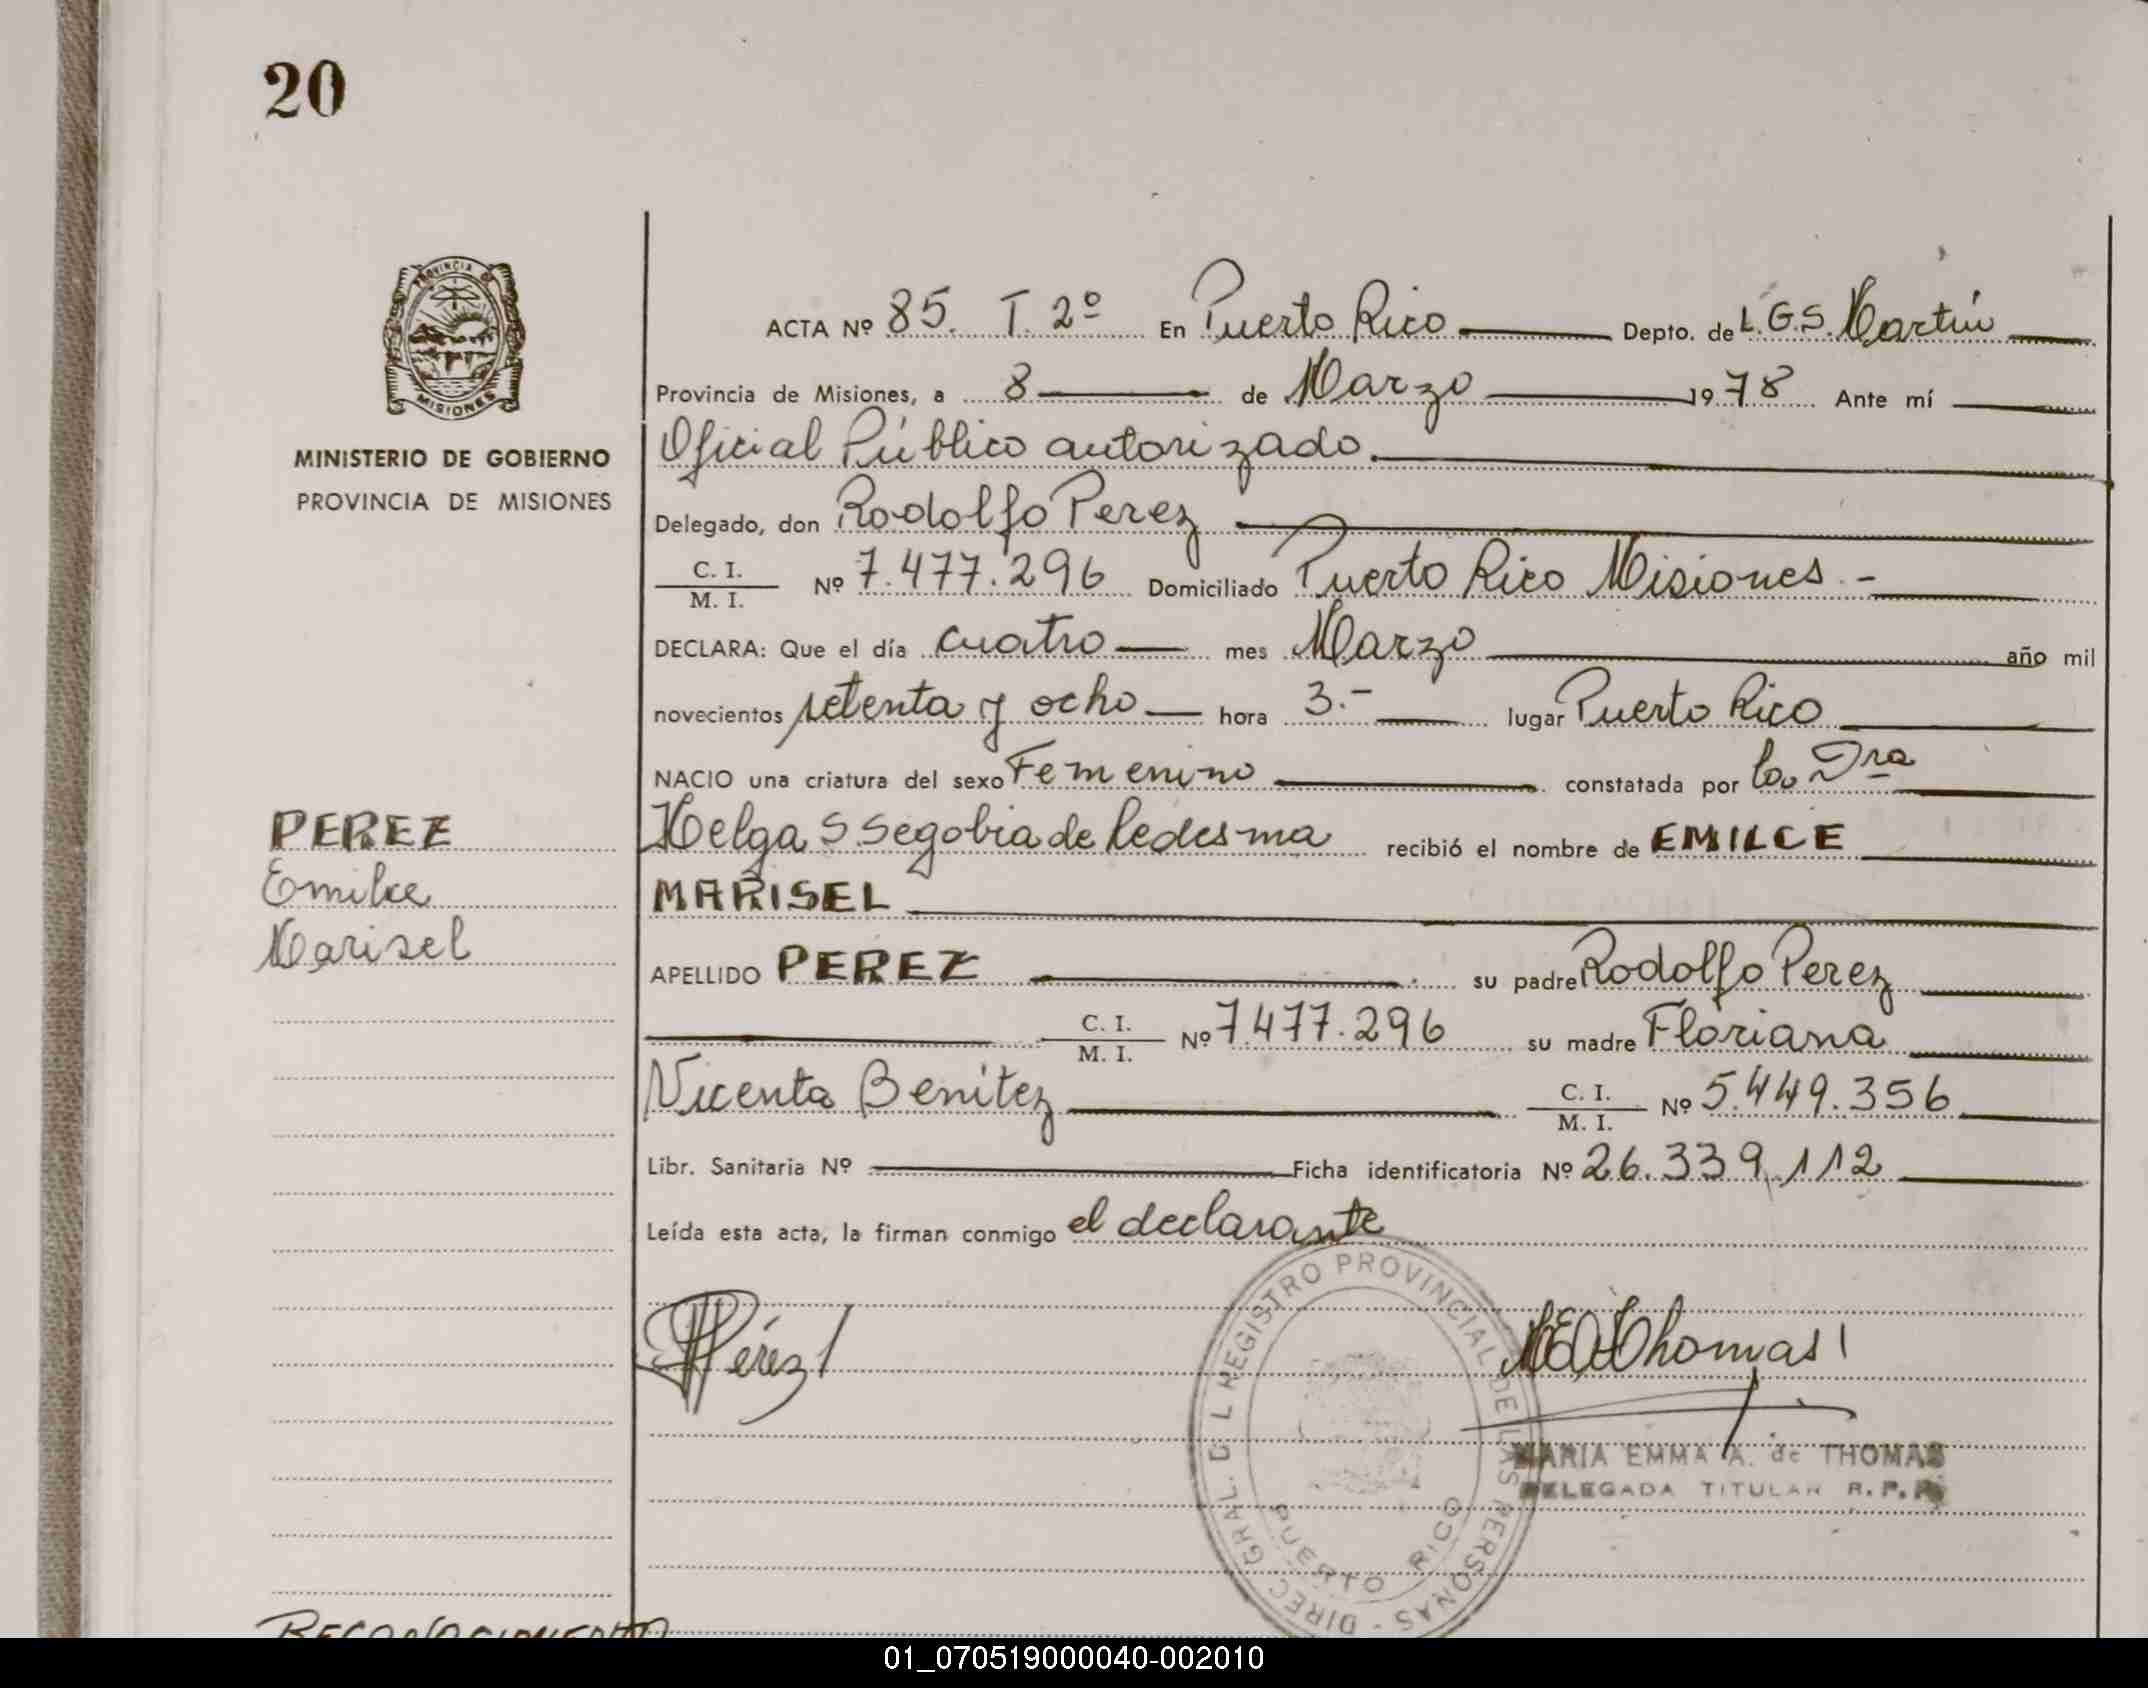 20
PROVINCIA DE
MISIONES
MINISTERIO DE GOBIERNO
PROVINCIA DE MISIONES
PEREZ
Emilce
Marisel
ACTA Nº 85. T. 2º En Puerto Rico Depto. de L.G.S. Martín
Provincia de Misiones, a 8 de Marzo 1978 Ante mí
Oficial Público autorizado.
Delegado, don Rodolfo Perez
C. I.
M. I. Nº 7.477.296 Domiciliado Puerto Rico Misiones.-
DECLARA: Que el día cuatro mes Marzo año mil
novecientos setenta y ocho hora 3.- lugar Puerto Rico
NACIO una criatura del sexo Femenino constatada por la Dra
Helga S. Segobia de Ledesma recibió el nombre de EMILCE
MARISEL
APELLIDO PEREZ su padre Rodolfo Perez
C. I.
M. I. Nº 7.477.296 su madre Floriana
Vicenta Benitez C. I.
M. I. Nº 5.449.356
Libr. Sanitaria Nº Ficha identificatoria Nº 26.339.112
Leída esta acta, la firman conmigo el declarante
Pérez
Thomas
DIREC. GRAL. DEL REGISTRO PROVINCIAL DE LAS PERSONAS -
PUERTO RICO
MARIA EMMA A. de THOMAS
DELEGADA TITULAR R.P.P.
RECONOCIMIENTO
01_070519000040-002010